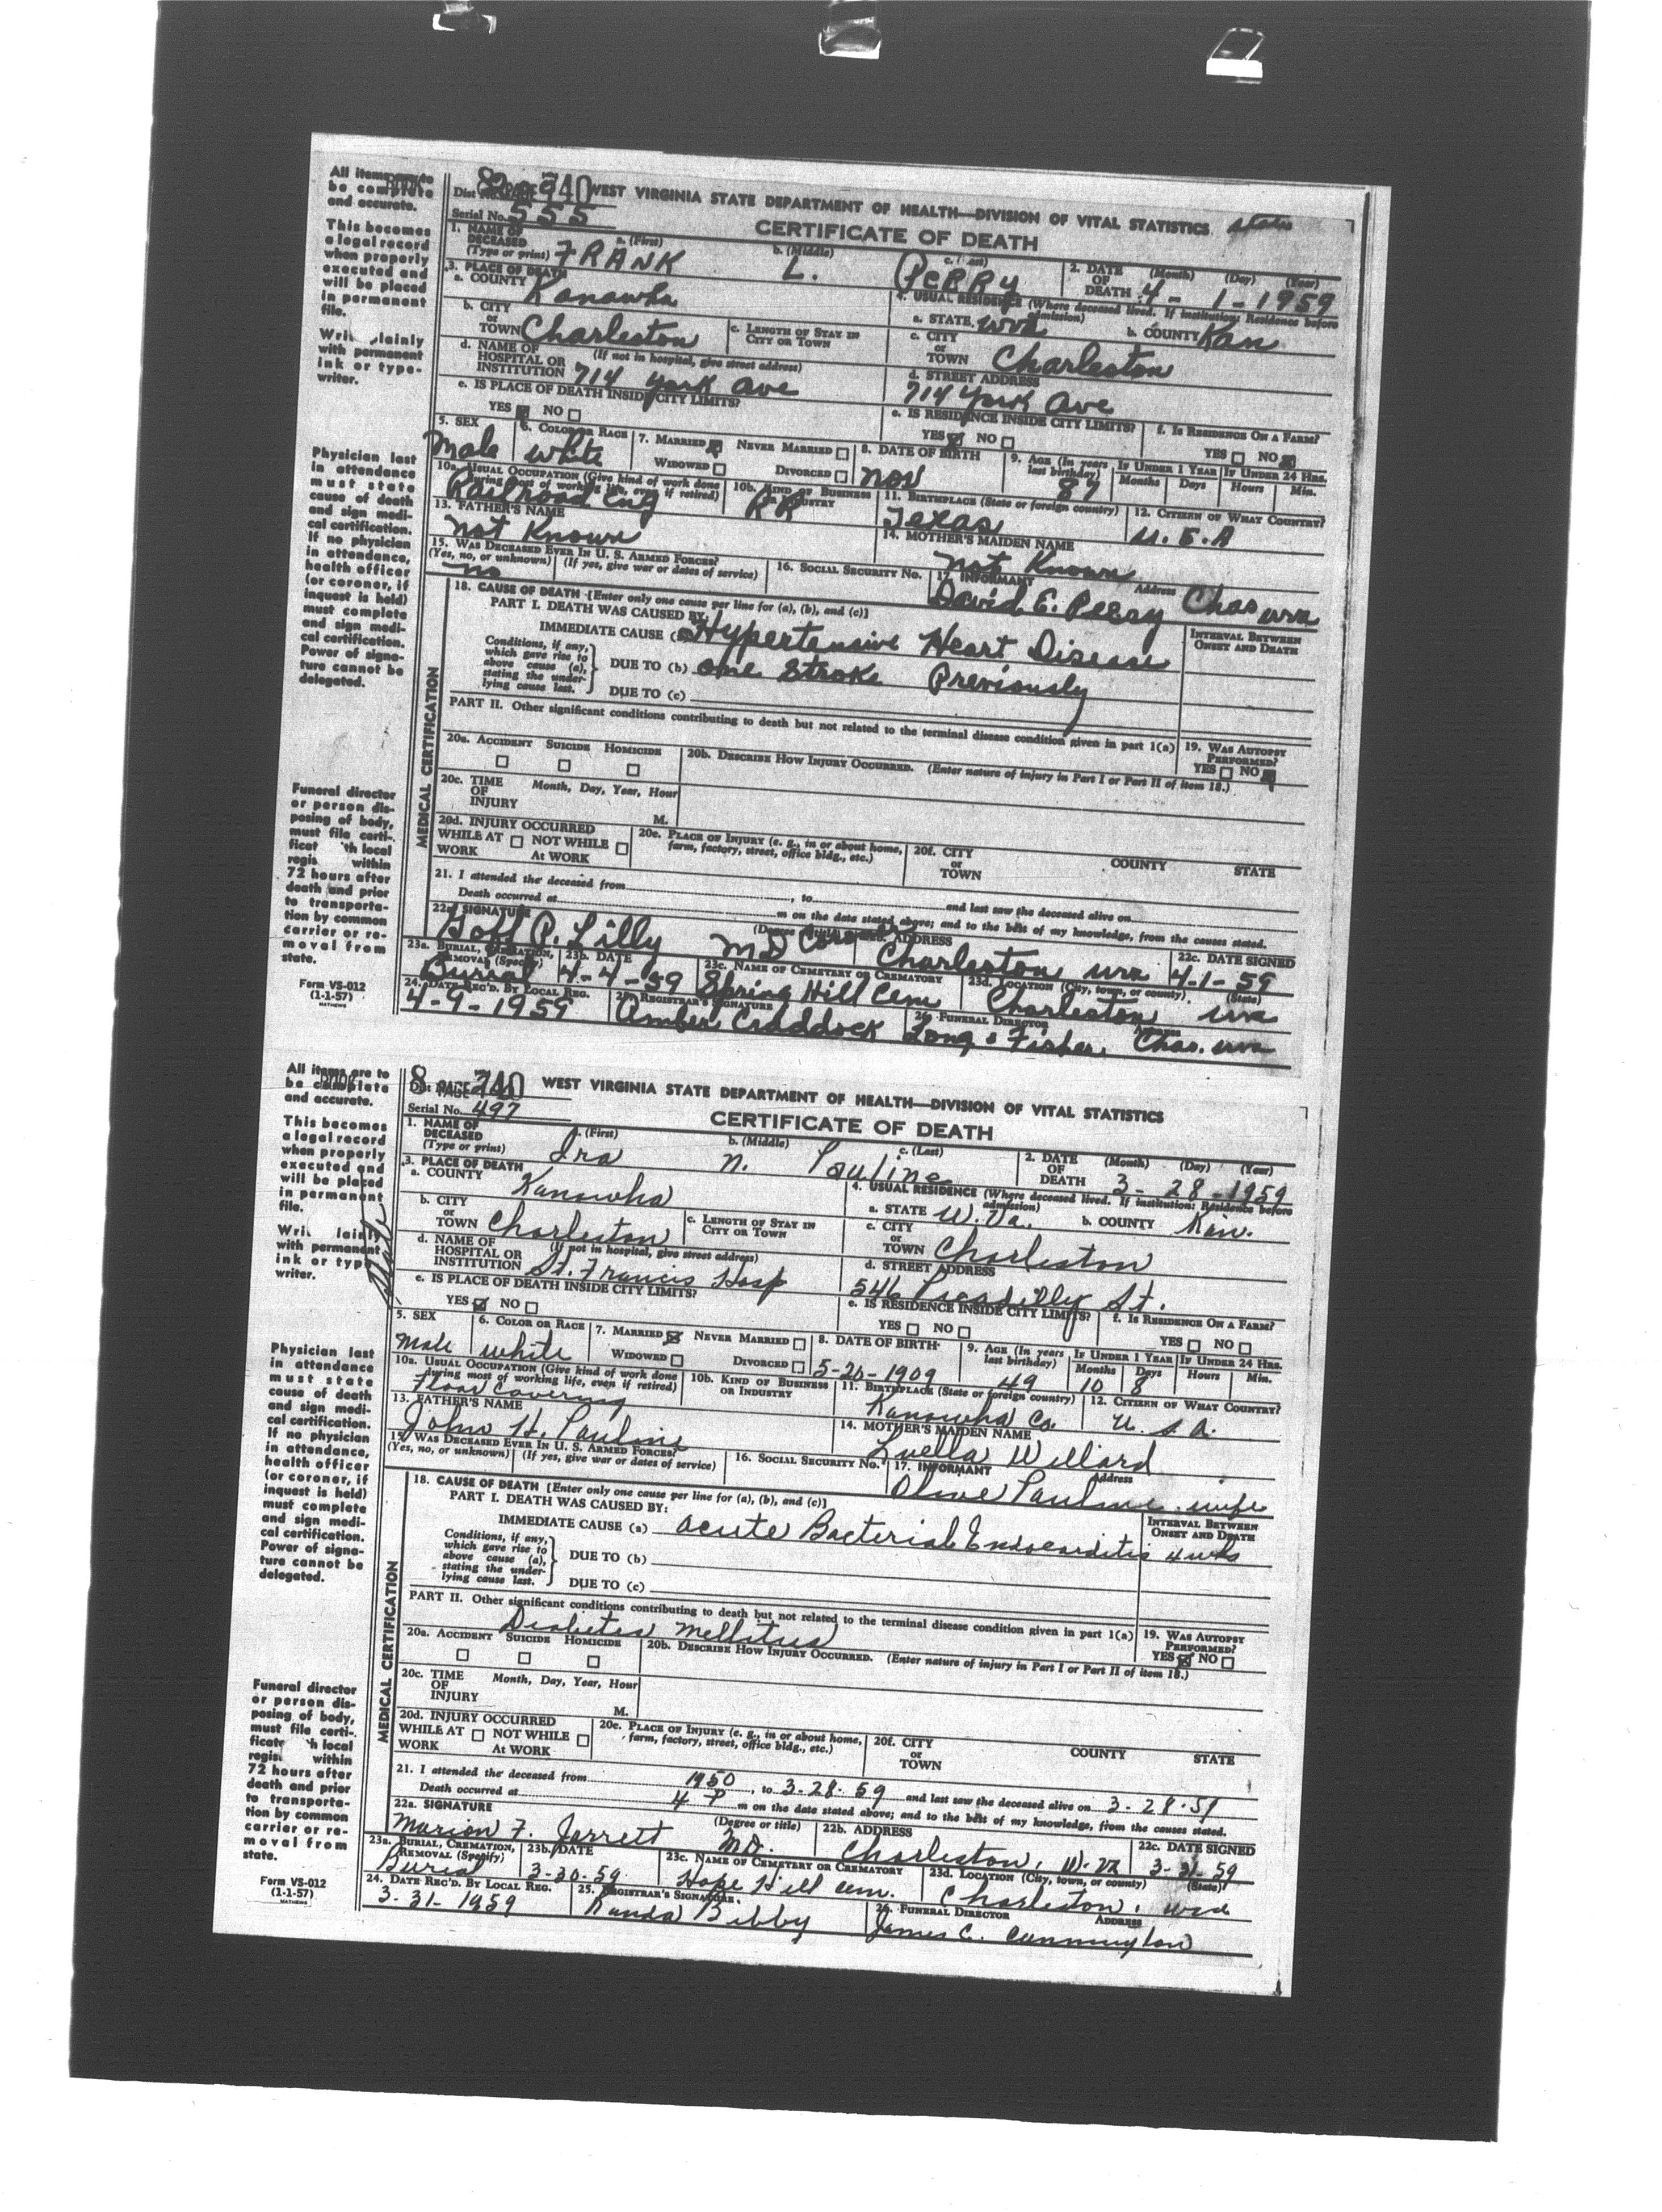 All items are to
be complete
and accurate.
This becomes
a legal record
when properly
executed and
will be placed
in permanent
file.
plainly
with permanent
ink or type-
writer.
Physician last
in attendance
must state
cause of death
and sign medi-
cal certification.
If no physician
in attendance,
health officer
(or coroner, if
inquest is held)
must complete
and sign medi-
cal certification.
Power of signa-
ture cannot be
delegated.
Funeral director
or person dis-
posing of body,
must file certi-
th local
within
72 hours after
death and prior
to transporta-
tion by common
carrier or re-
moval from
state.
Form VS-012
(1-1-57)
MATHEWS
WEST VIRGINIA STATE DEPARTMENT OF HEALTH—DIVISION OF VITAL STATISTICS state
Serial No. 555 CERTIFICATE OF DEATH
1. NAME OF DECEASED (Type or print) a. (First) FRANK b. (Middle) L. c. (Last) PERRY 2. DATE OF DEATH (Month) (Day) (Year) 4 - 1 - 1959
3. PLACE OF DEATH a. COUNTY Kanawha 4. USUAL RESIDENCE (Where deceased lived. If institution: Residence before admission) a. STATE wva b. COUNTY Kan
b. CITY or TOWN Charleston c. LENGTH OF STAY IN CITY OR TOWN c. CITY or TOWN Charleston
d. NAME OF HOSPITAL OR INSTITUTION (If not in hospital, give street address) 714 York Ave d. STREET ADDRESS 714 York Ave
e. IS PLACE OF DEATH INSIDE CITY LIMITS? YES NO e. IS RESIDENCE INSIDE CITY LIMITS? YES NO f. IS RESIDENCE ON A FARM? YES NO
5. SEX Male 6. COLOR OR RACE white 7. MARRIED NEVER MARRIED WIDOWED DIVORCED 8. DATE OF BIRTH nov 9. AGE (In years last birthday) 87 IF UNDER 1 YEAR Months Days IF UNDER 24 HRS. Hours Min.
10a. USUAL OCCUPATION (Give kind of work done during most of working life, even if retired) Railroad Eng 10b. KIND OF BUSINESS OR INDUSTRY RR 11. BIRTHPLACE (State or foreign country) Texas 12. CITIZEN OF WHAT COUNTRY? U.S.A
13. FATHER'S NAME not Known 14. MOTHER'S MAIDEN NAME not Known
15. WAS DECEASED EVER IN U. S. ARMED FORCES? (Yes, no, or unknown) (If yes, give war or dates of service) no 16. SOCIAL SECURITY NO. 17. INFORMANT Address David E. Perry Chas wva
18. CAUSE OF DEATH [Enter only one cause per line for (a), (b), and (c)] INTERVAL BETWEEN ONSET AND DEATH
PART I. DEATH WAS CAUSED BY:
IMMEDIATE CAUSE (a) Hypertensive Heart Disease
Conditions, if any, which gave rise to above cause (a), stating the underlying cause last. DUE TO (b) one Stroke Previously
DUE TO (c)
PART II. Other significant conditions contributing to death but not related to the terminal disease condition given in part 1(a) 19. WAS AUTOPSY PERFORMED? YES NO
20a. ACCIDENT SUICIDE HOMICIDE 20b. DESCRIBE HOW INJURY OCCURRED. (Enter nature of injury in Part I or Part II of item 18.)
20c. TIME OF INJURY Month, Day, Year, Hour M.
20d. INJURY OCCURRED WHILE AT WORK NOT WHILE AT WORK 20e. PLACE OF INJURY (e. g., in or about home, farm, factory, street, office bldg., etc.) 20f. CITY or TOWN COUNTY STATE
21. I attended the deceased from , to and last saw the deceased alive on
Death occurred at m on the date stated above; and to the best of my knowledge, from the causes stated.
22a. SIGNATURE Goff P. Lilly (Degree or title) MD Coroner 22b. ADDRESS Charleston wva 22c. DATE SIGNED 4-1-59
23a. BURIAL, CREMATION, REMOVAL (Specify) Burial 23b. DATE 4-4-59 23c. NAME OF CEMETERY OR CREMATORY Spring Hill Cem 23d. LOCATION (City, town, or county) (State) Charleston wva
24. DATE REC'D. BY LOCAL REG. 4-9-1959 25. REGISTRAR'S SIGNATURE Amber Craddock 26. FUNERAL DIRECTOR Address Long & Fisher, Chas. wva
All items are to
be complete
and accurate.
This becomes
a legal record
when properly
executed and
will be placed
in permanent
file.
with permanent
ink or type
writer.
Physician last
in attendance
must state
cause of death
and sign medi-
cal certification.
If no physician
in attendance,
health officer
(or coroner, if
inquest is held)
must complete
and sign medi-
cal certification.
Power of signa-
ture cannot be
delegated.
Funeral director
or person dis-
posing of body,
must file certi-
h local
within
72 hours after
death and prior
to transporta-
tion by common
carrier or re-
moval from
state.
Form VS-012
(1-1-57)
MATHEWS
WEST VIRGINIA STATE DEPARTMENT OF HEALTH—DIVISION OF VITAL STATISTICS
Serial No. 497 CERTIFICATE OF DEATH
1. NAME OF DECEASED (Type or print) a. (First) Ira b. (Middle) N. c. (Last) Pauline 2. DATE OF DEATH (Month) (Day) (Year) 3 - 28 - 1959
3. PLACE OF DEATH a. COUNTY Kanawha 4. USUAL RESIDENCE (Where deceased lived. If institution: Residence before admission) a. STATE W. Va. b. COUNTY Kan.
b. CITY or TOWN Charleston c. LENGTH OF STAY IN CITY OR TOWN c. CITY or TOWN Charleston
d. NAME OF HOSPITAL OR INSTITUTION (If not in hospital, give street address) St. Francis Hosp d. STREET ADDRESS 546 Picadilly St.
e. IS PLACE OF DEATH INSIDE CITY LIMITS? YES NO e. IS RESIDENCE INSIDE CITY LIMITS? YES NO f. IS RESIDENCE ON A FARM? YES NO
5. SEX Male 6. COLOR OR RACE white 7. MARRIED NEVER MARRIED WIDOWED DIVORCED 8. DATE OF BIRTH 5-20-1909 9. AGE (In years last birthday) 49 IF UNDER 1 YEAR Months 10 Days 8 IF UNDER 24 HRS. Hours Min.
10a. USUAL OCCUPATION (Give kind of work done during most of working life, even if retired) Floor Covering 10b. KIND OF BUSINESS OR INDUSTRY 11. BIRTHPLACE (State or foreign country) Kanawha Co. 12. CITIZEN OF WHAT COUNTRY? U.S.A.
13. FATHER'S NAME John H. Pauline 14. MOTHER'S MAIDEN NAME Luella Willard
15. WAS DECEASED EVER IN U. S. ARMED FORCES? (Yes, no, or unknown) (If yes, give war or dates of service) 16. SOCIAL SECURITY NO. 17. INFORMANT Address Olive Pauline - wife
18. CAUSE OF DEATH [Enter only one cause per line for (a), (b), and (c)] INTERVAL BETWEEN ONSET AND DEATH
PART I. DEATH WAS CAUSED BY:
IMMEDIATE CAUSE (a) acute Bacterial Endocarditis 4 wks
Conditions, if any, which gave rise to above cause (a), stating the underlying cause last. DUE TO (b)
DUE TO (c)
PART II. Other significant conditions contributing to death but not related to the terminal disease condition given in part 1(a) Diabetes Mellitus 19. WAS AUTOPSY PERFORMED? YES NO
20a. ACCIDENT SUICIDE HOMICIDE 20b. DESCRIBE HOW INJURY OCCURRED. (Enter nature of injury in Part I or Part II of item 18.)
20c. TIME OF INJURY Month, Day, Year, Hour M.
20d. INJURY OCCURRED WHILE AT WORK NOT WHILE AT WORK 20e. PLACE OF INJURY (e. g., in or about home, farm, factory, street, office bldg., etc.) 20f. CITY or TOWN COUNTY STATE
21. I attended the deceased from 1950, to 3-28-59 and last saw the deceased alive on 3-28-59
Death occurred at 4 P m on the date stated above; and to the best of my knowledge, from the causes stated.
22a. SIGNATURE Marion F. Jarrett (Degree or title) MD. 22b. ADDRESS Charleston, W. Va 22c. DATE SIGNED 3-31-59
23a. BURIAL, CREMATION, REMOVAL (Specify) Burial 23b. DATE 3-30-59 23c. NAME OF CEMETERY OR CREMATORY Hope Hill cem. 23d. LOCATION (City, town, or county) (State) Charleston, wva
24. DATE REC'D. BY LOCAL REG. 3-31-1959 25. REGISTRAR'S SIGNATURE Randa Bibby 26. FUNERAL DIRECTOR Address James C. Cunningham